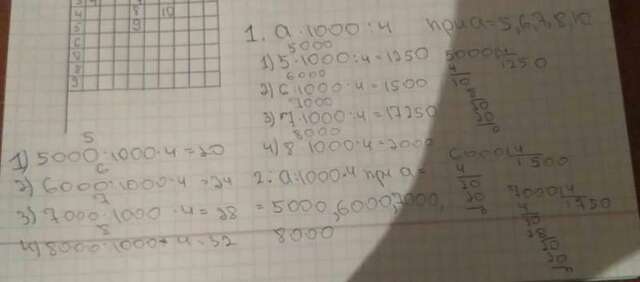 4 8 10
5 9
6
8
9
1. a·1000:4 при a=5,6,7,8,10
5000
1) 5·1000:4=1250
6000
2) 6·1000:4=1500
7000
3) 7·1000:4=17250
8000
4) 8 1000:4=2000
5000 4
4 1250
10
20
20
0
5
1) 5000:1000·4=20
6
2) 6000:1000·4=24
7
3) 7000:1000·4=28
8
4) 8000:1000·4=32
2. a:1000·4 при a=
=5000,6000,7000,
8000
6000 4
4 1500
20
20
0
7000 4
4 1750
30
28
20
20
0